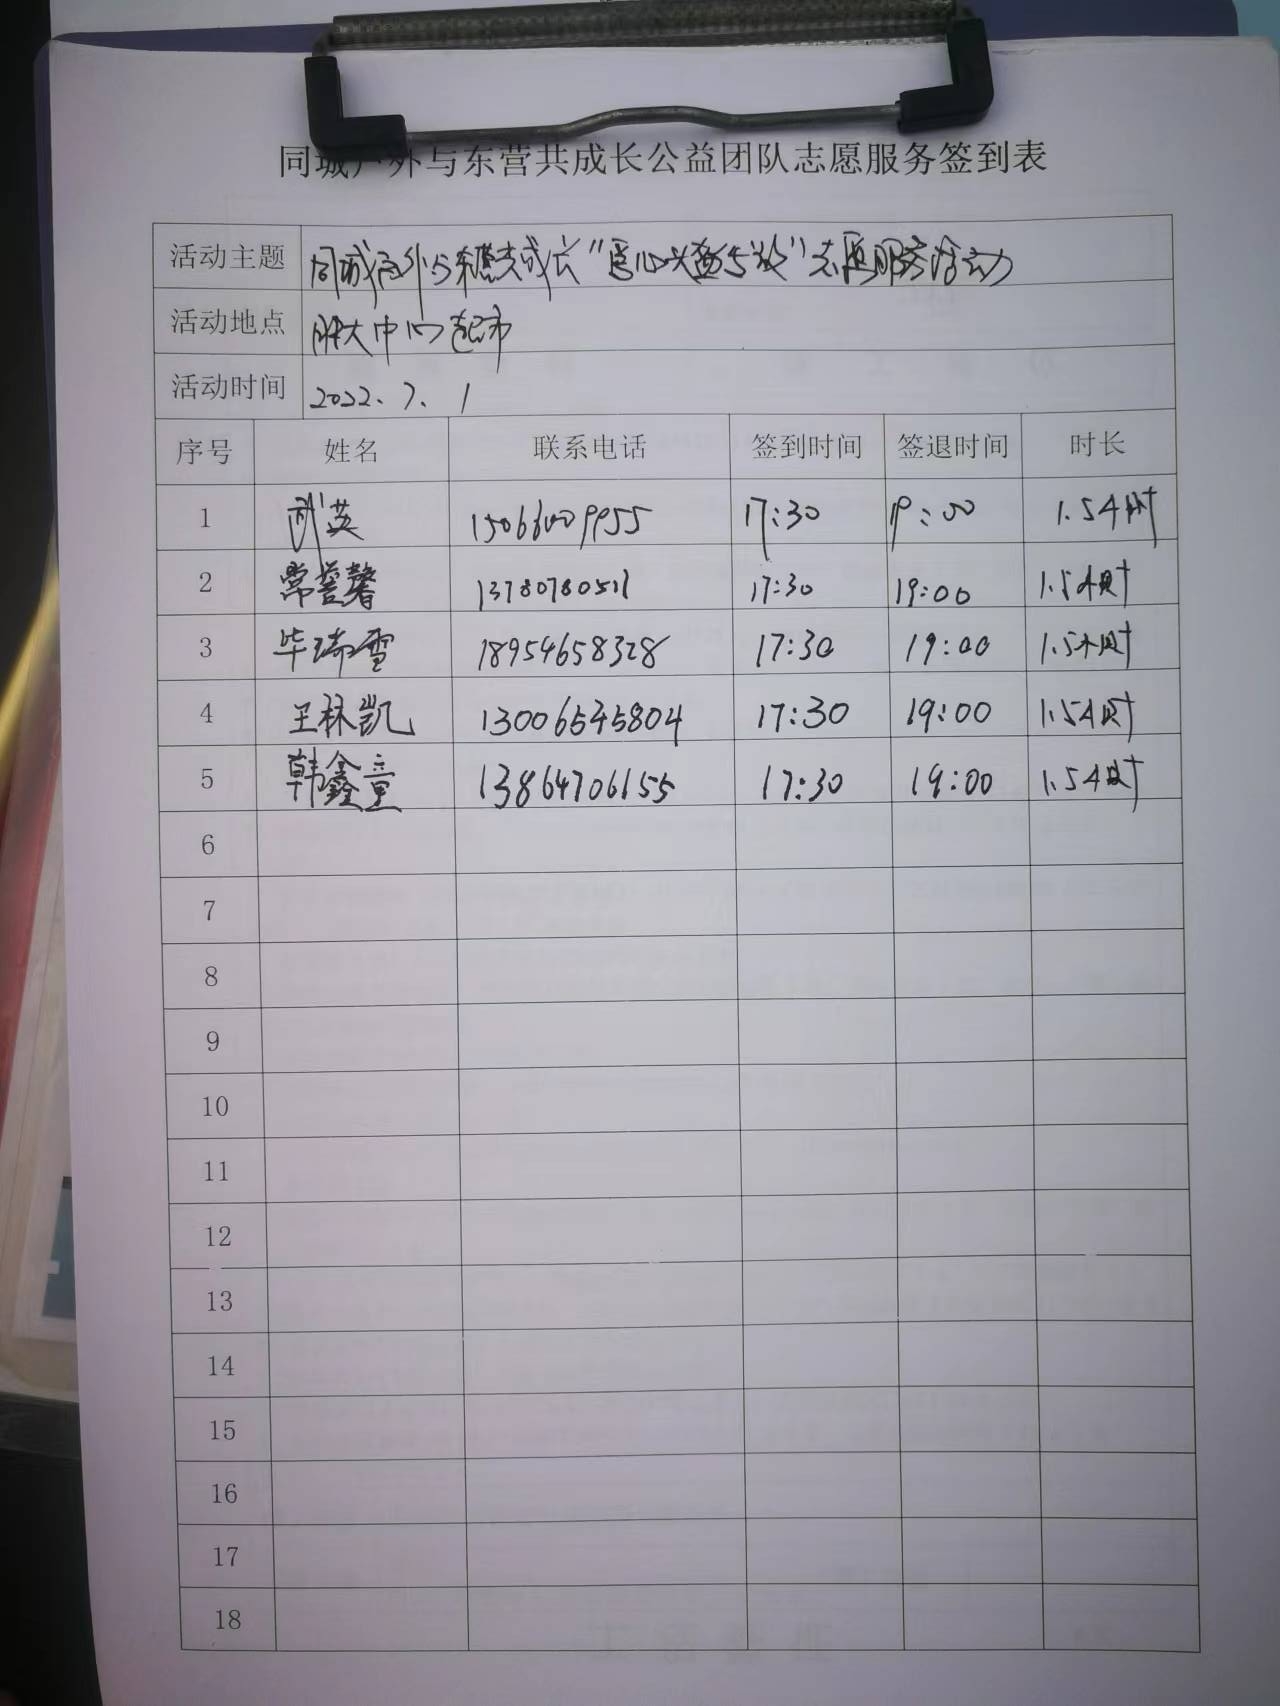 同城户外与东营共成长公益团队志愿服务签到表
活动主题 同城户外与东营共成长“爱心义卖与放”志愿服务活动
活动地点 胜大中心超市
活动时间 2022.7.1
序号 姓名 联系电话 签到时间 签退时间 时长
1 武英 15066009955 17:30 19:00 1.5小时
2 常誉馨 13780780511 17:30 19:00 1.5小时
3 毕瑞雪 18954658328 17:30 19:00 1.5小时
4 王林凯 13006545804 17:30 19:00 1.5小时
5 韩鑫童 13864706155 17:30 19:00 1.5小时
6
7
8
9
10
11
12
13
14
15
16
17
18